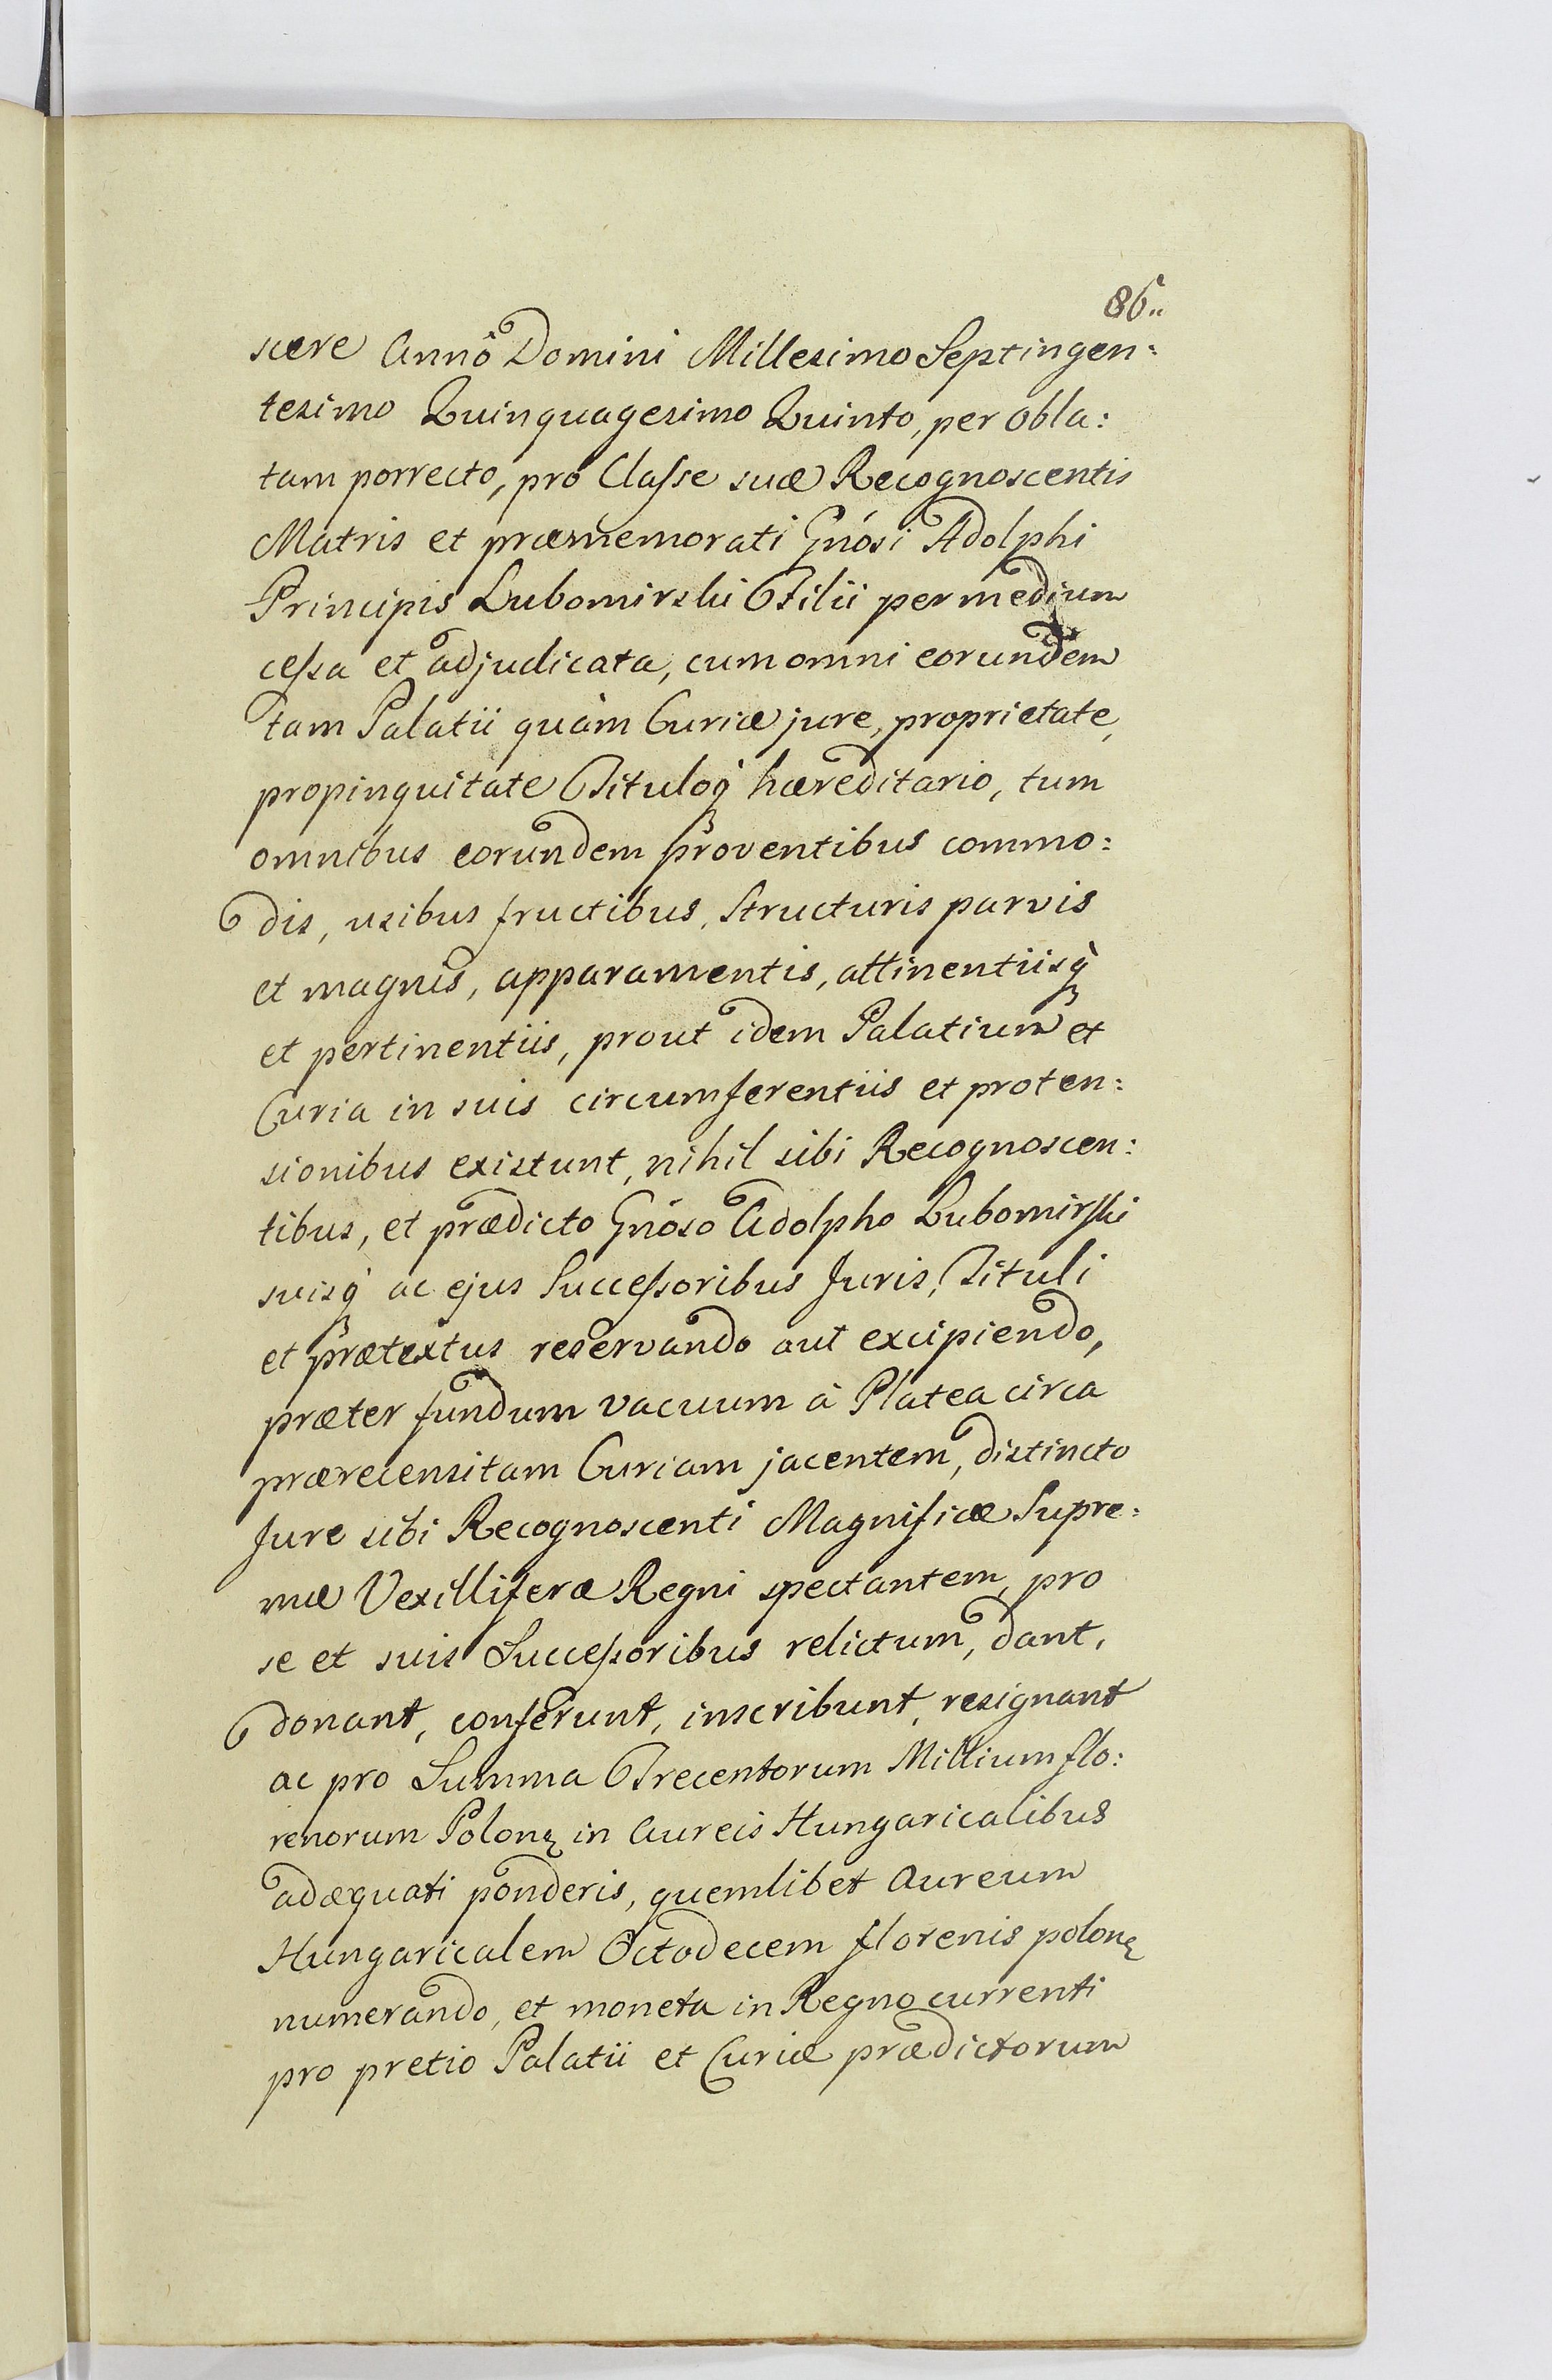 86.
scere Annô Domini Millesimo Septingen:
tesimo Quinquagesimo Quinto, per obla:
tam porrecto, pro Classe suæ Recognoscentis
Matris et præmemorati Gnósi Adolphi
Principis Lubomirski Filii per medium
cessa et adjudicata, cum omni eorundem
tam Palatii quàm Curiæ jure, proprietate,
propinquitate Tituloq̀ hæreditario, tum
omnibus eorundem proventibus commo:
dis, usibus fructibus, Structuris parvis
et magnis, apparamentis, attinentiisq̀
et pertinentiis, prout idem Palatium et
Curia in suis circumferentiis et proten:
sionibus existunt, nihil sibi Recognoscen:
tibus, et prædicto Gnóso Adolpho Lubomirski
suisq̀ ac ejus Successoribus Juris, Tituli
et prætextus reservando aut excipiendo,
præter fundum vacuum à Platea circa
prærecensitam Curiam jacentem, distincto
Jure sibi Recognoscenti Magnificæ Supre:
mæ Vexilliferæ Regni spectantem, pro
se et suis Successoribus relictum, dant,
donant, conferunt, inscribunt, resignant
ac pro Summa Trecentorum Millium flo:
renorum Polonę in Aureis Hungaricalibus
adæquati ponderis, quemlibet Aureum
Hungaricalem Octodecem florenis polonę
numerando, et moneta in Regno currenti
pro pretio Palatii et Curiæ prædictorum